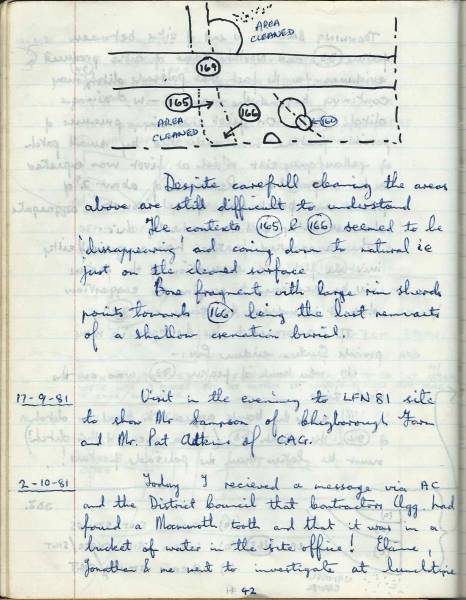 AREA
CLEANED
169
165
166
160
AREA
CLEANED
Despite carefull cleaning the areas
above are still difficult to understand
The contexts 165 & 166 seemed to be
'disappearing' and coming down to natural ie
just on the cleaned surface
Bone fragments with large rim sherds
points towards 166 being the last remnants
of a shallow cremation burial.
17-9-81 Visit in the evening to LFN81 site
to show Mr Sampson of Farm
and Mr. Pat of CAG.
2-10-81 Today I recieved a message via AC
and the District Council that Contractors had
found a Mammoth tooth and that it was in a
bucket of water in the site office! Elaine,
Jonathan & me went to investigate at lunchtime
42